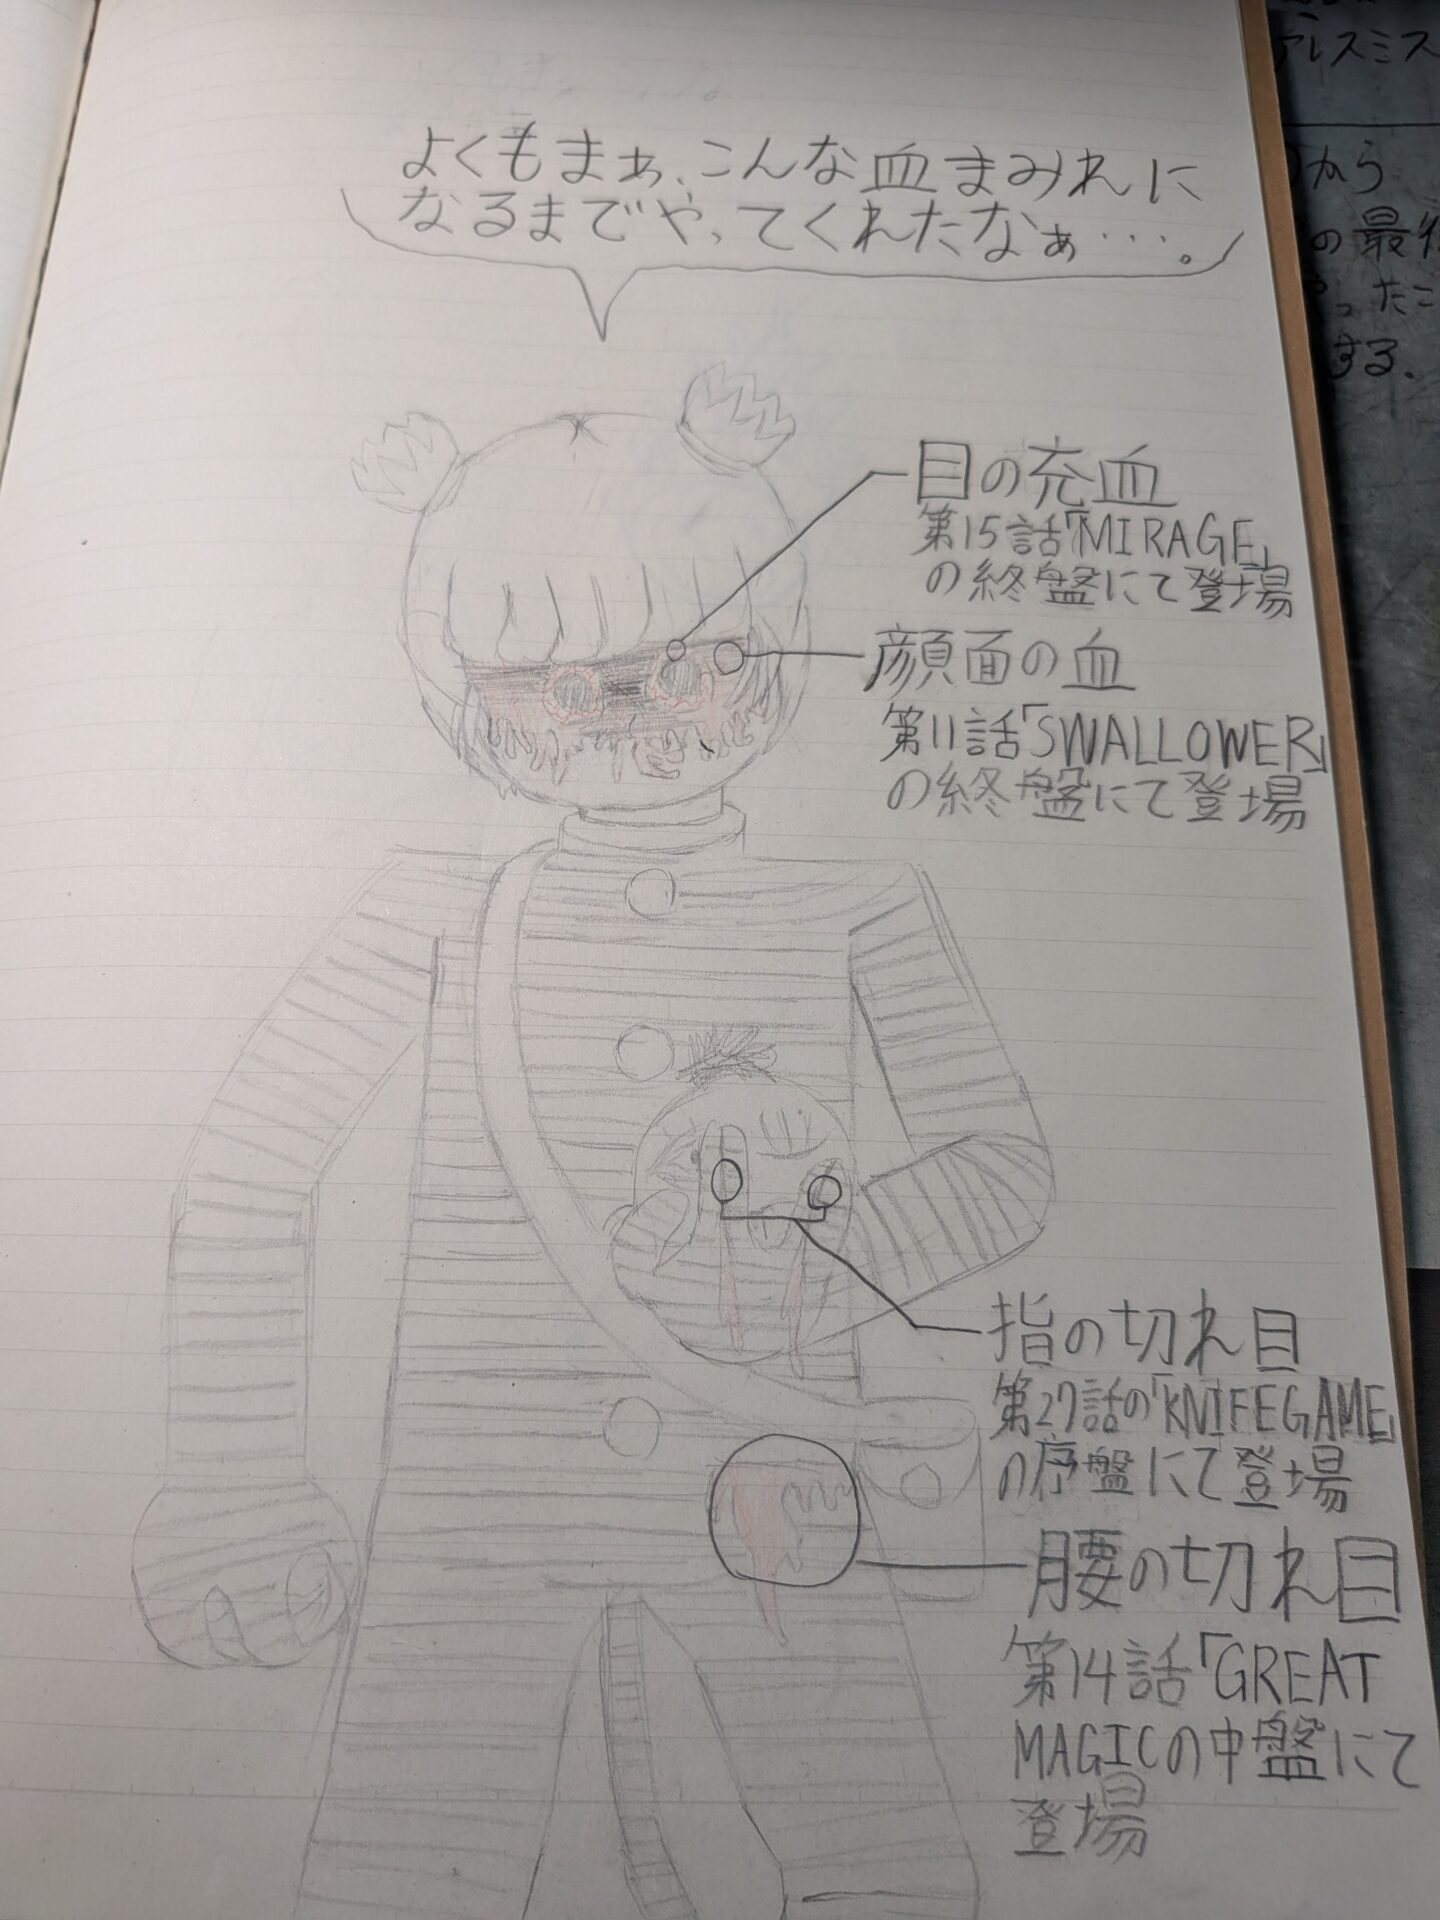 よくもまぁ、こんな血まみれに
なるまでやってくれたなぁ…。
目の充血
第15話「MIRAGE」
の終盤にて登場
顔面の血
第11話「SWALLOWER」
の終盤にて登場
指の切れ目
第27話の「KNIFEGAME」
の序盤にて登場
腰の切れ目
第14話「GREAT
MAGICの中盤にて
登場
アレスミス
から
の最後
ったこ
する.